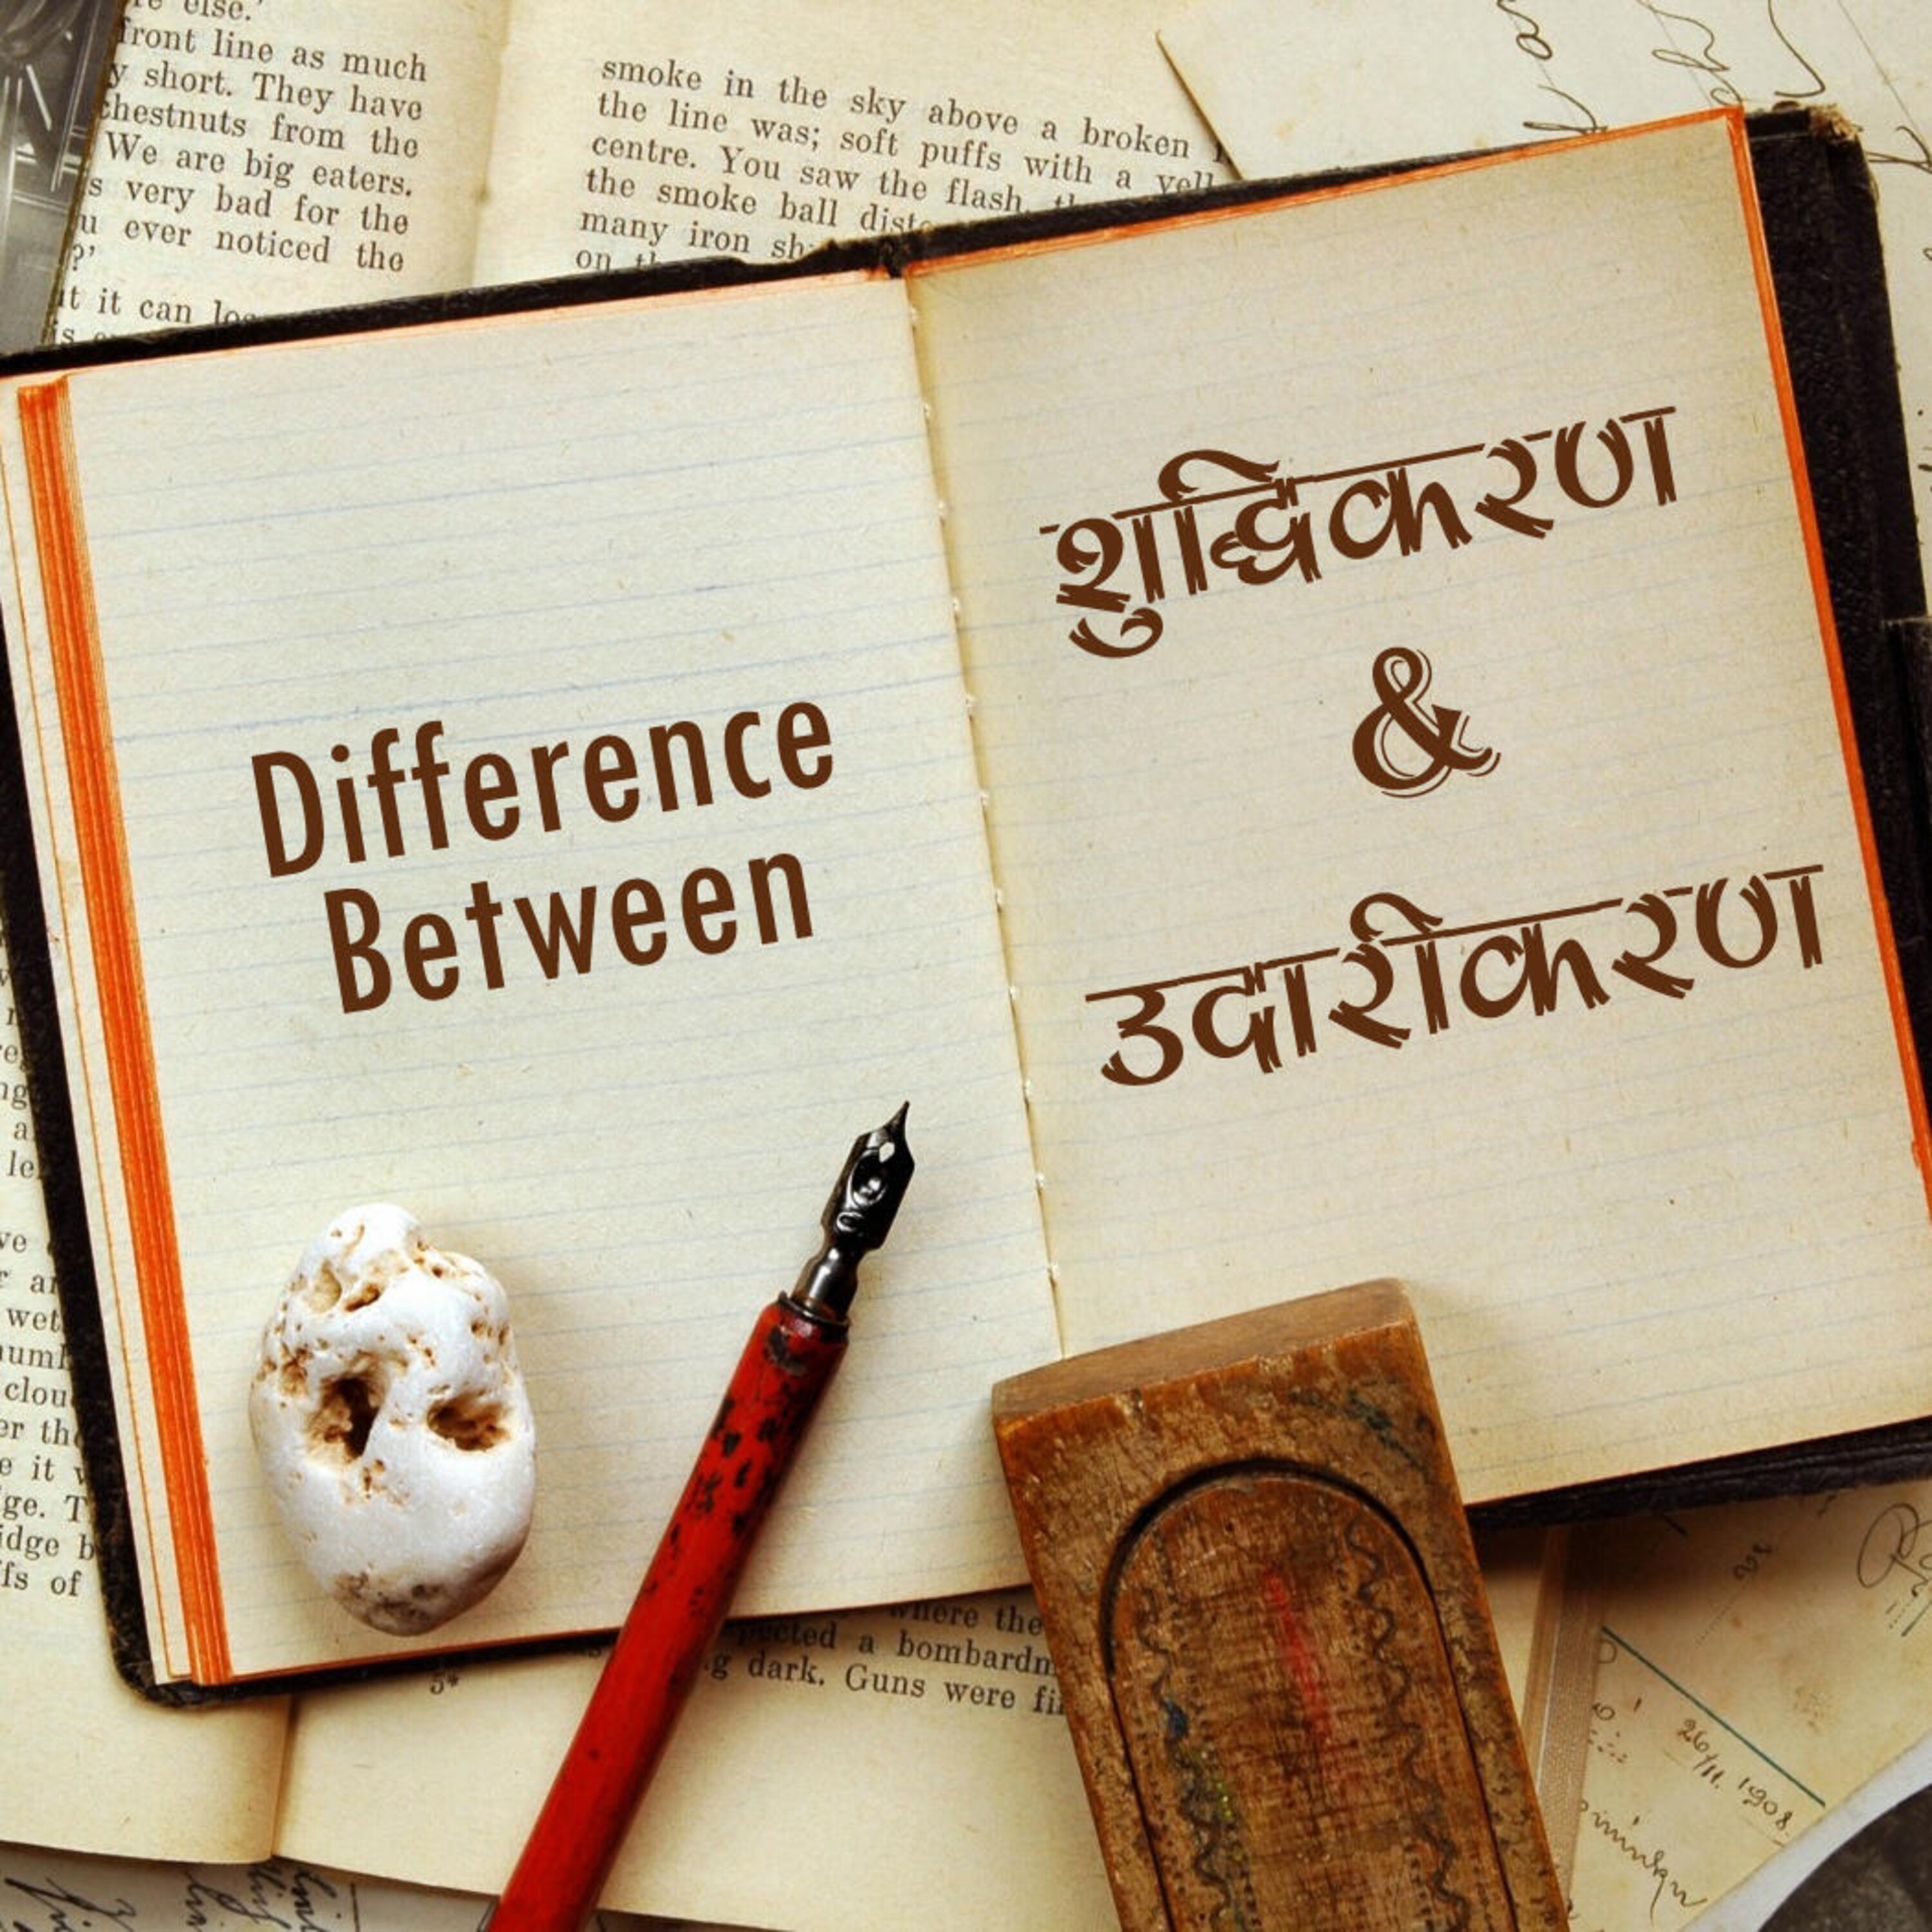 re else.'
front line as much
y short. They have
chestnuts from the
We are big eaters.
s very bad for the
u ever noticed the
?'
it it can
smoke in the sky above a broken
the line was; soft puffs with a
centre. You saw the flash,
the smoke ball
many iron
on
Difference
Between
शुद्धिकरण
&
उदारीकरण
a
le
wet
clou
er the
e it
ge. T
idge b
fs of
where the
a bombardm
g dark. Guns were
5*
26/11. 1908.